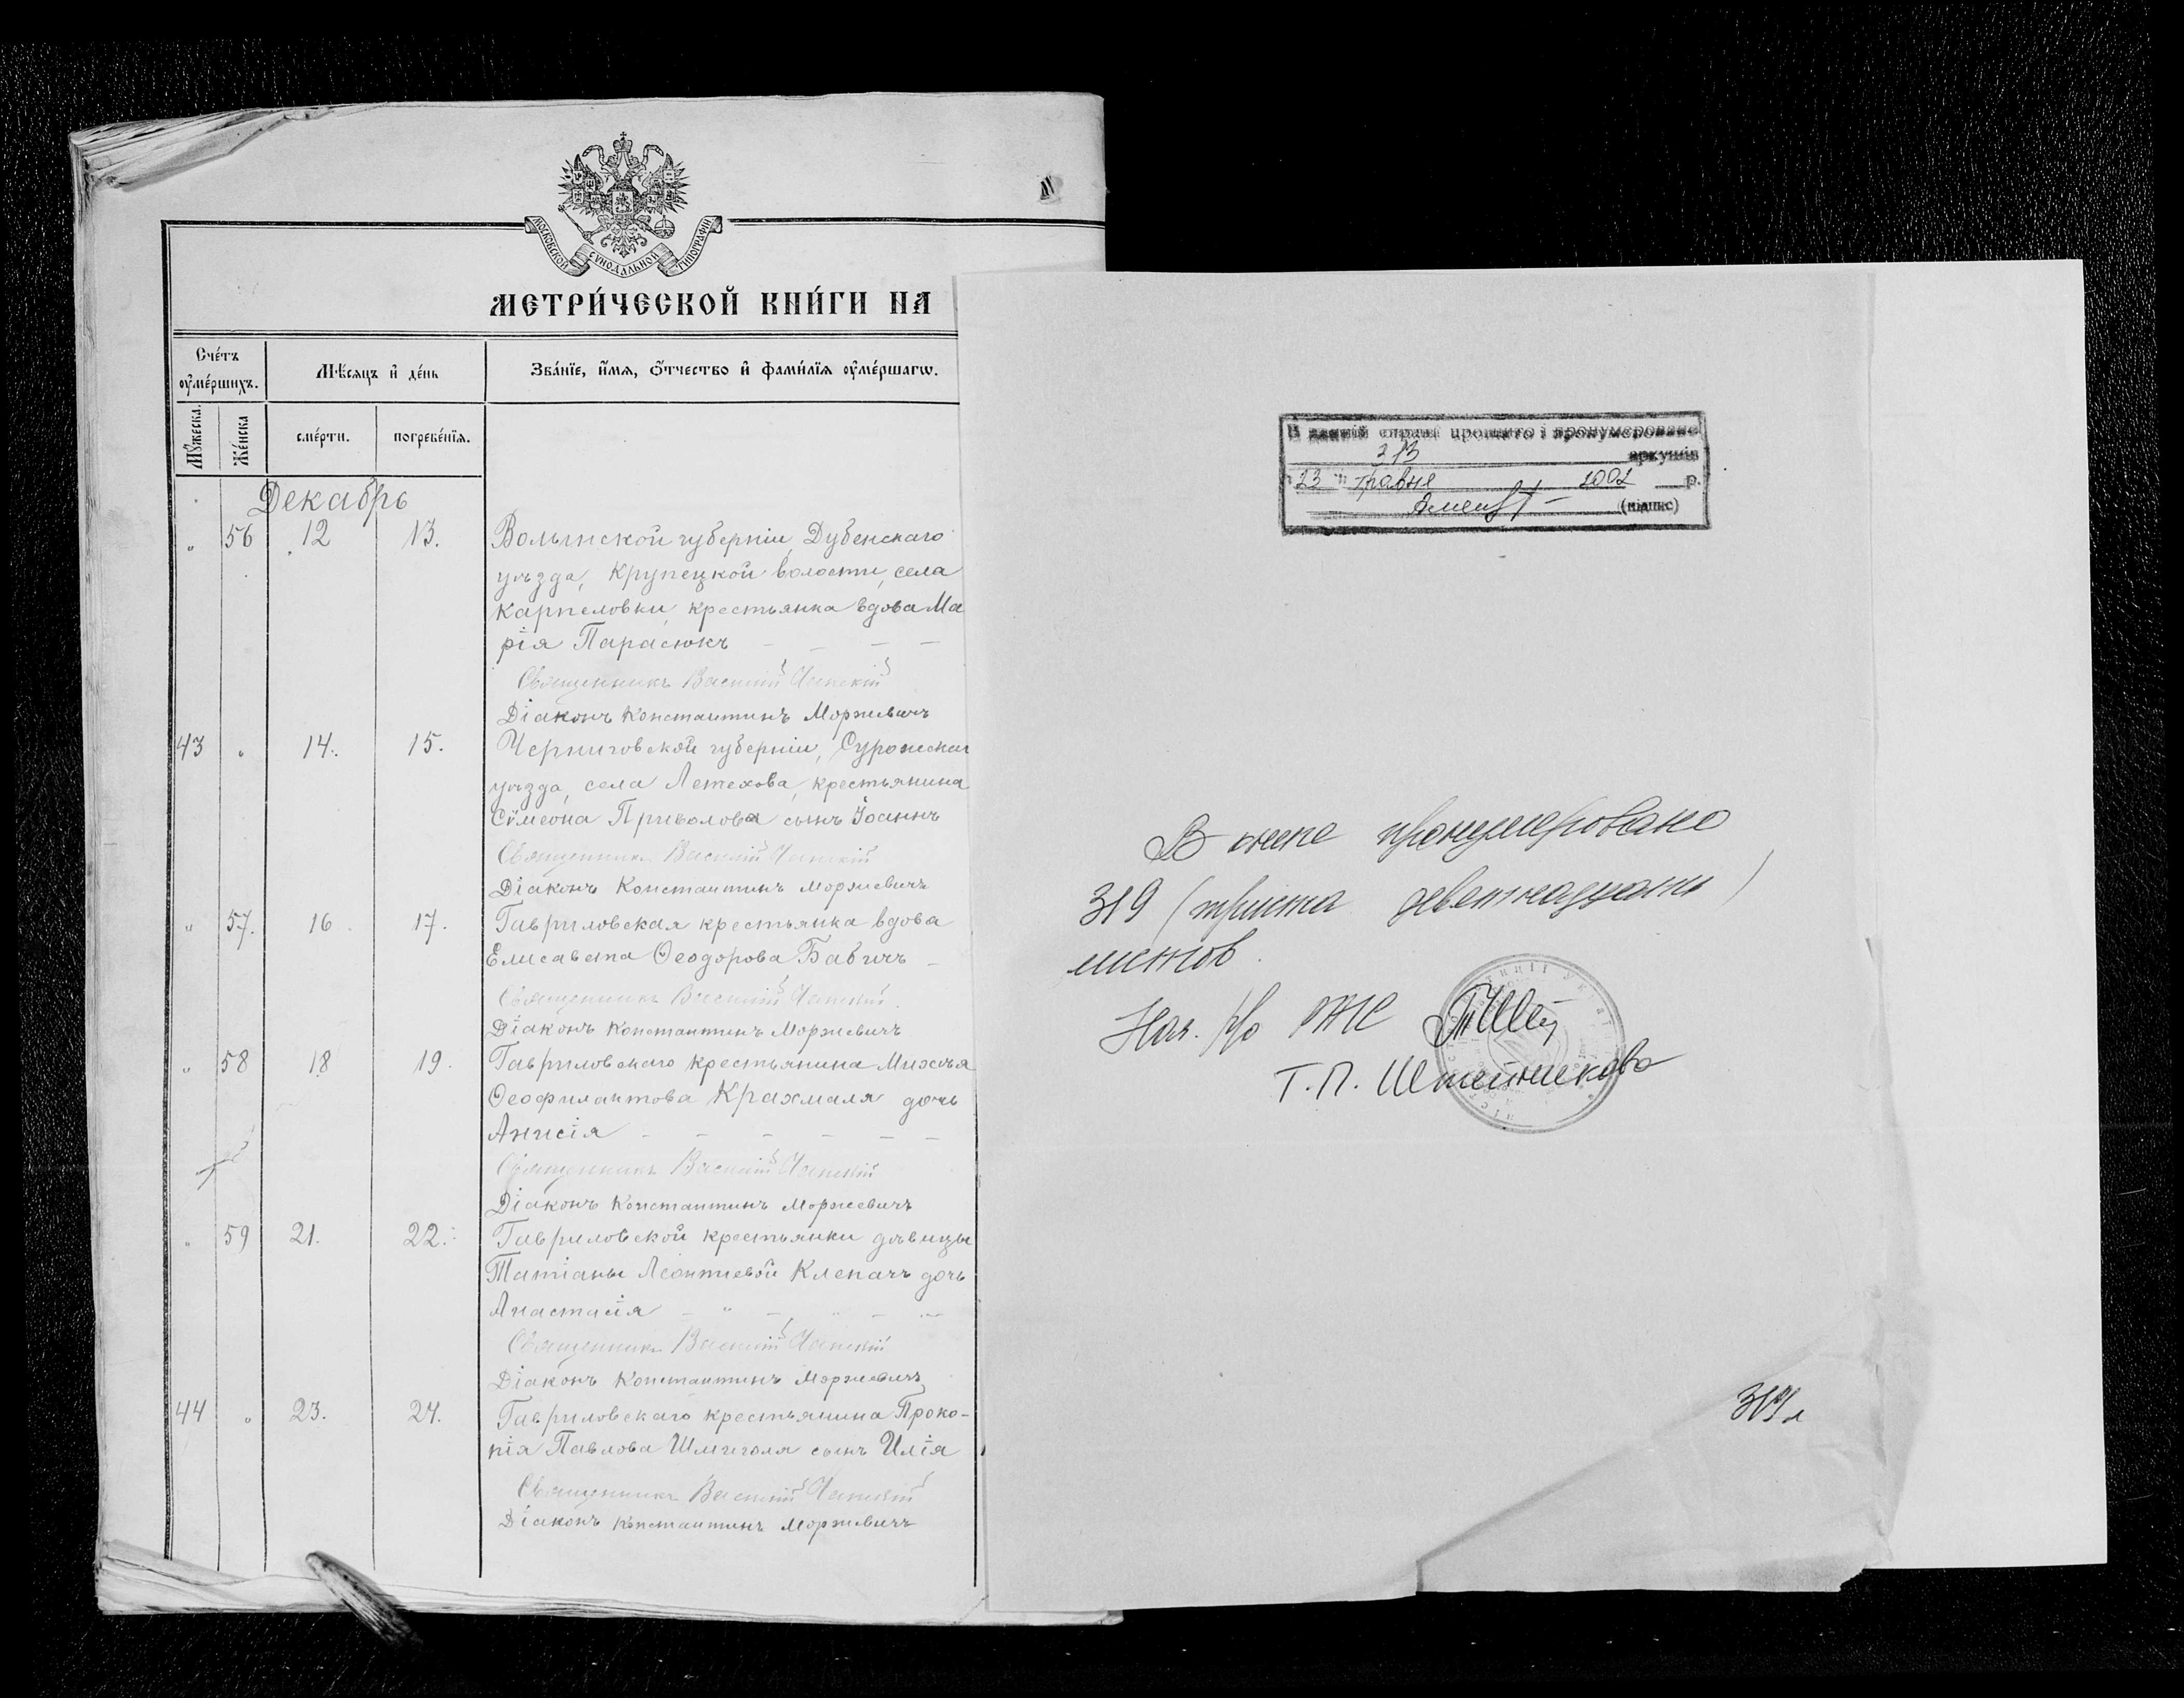 МОСКОВСКОЙ СУНОДАЛЬНОЙ ТИПОГРАФІИ
МЕТРИ́ЧЕСКОЙ КНИ́ГИ НА
Сче́тъ оу҆ме́ршихъ.
Мѣ́сяцъ и҆ де́нь
Зва́нїе, и҆́мѧ, ѻ҆́тчество и҆ фами́лїѧ оу҆ме́ршагѡ.
Мꙋ́жеска.
Же́нска
сме́рти.
погребе́нїѧ.
Декабрь
„ 56 12 13. Волынской губерніи, Дубенскаго
уѣзда, Крупецкой волости, села
Карпеловки, крестьянка вдова Ма
рія Парасюкъ
Священникъ Василій
Діаконъ Константинъ Моржевичъ
43 „ 14. 15. Черниговской губерніи, Суражскаг
уѣзда, села Летехова, крестьянина
Сѵмеона Приволова сынъ Іоаннъ
Священникъ Василій
Діаконъ Константинъ Моржевичъ
„ 57. 16 17. Гавриловская крестьянка вдова
Елисавета Ѳеодорова Бабичъ
Священникъ Василій
Діаконъ Константинъ Моржевичъ
„ 58 18 19. Гавриловскаго крестьянина Михаѣ
Ѳеофилактова Крахмаля дочь
Анисія
Священникъ Василій
Діаконъ Константинъ Моржевичъ
„ 59 21. 22. Гавриловской крестьянки дѣвицы
Татіаны Леонтіевой Клепачъ дочь
Анастасія
Священникъ Василій
Діаконъ Константинъ Моржевичъ
44 „ 23. 24. Гавриловскаго крестьянина Проко-
пія Павлова Шмиголя сынъ Илія
Священникъ Василій
Діаконъ Константинъ Моржевичъ
В даній справі прошито і пронумеровано
313 аркушів
"23" травня 2002 р.
(підпис)
В книге пронумеровано
319 (триста девятнадцать)
листов.
Нач. р/о
Т.П. Штейникова